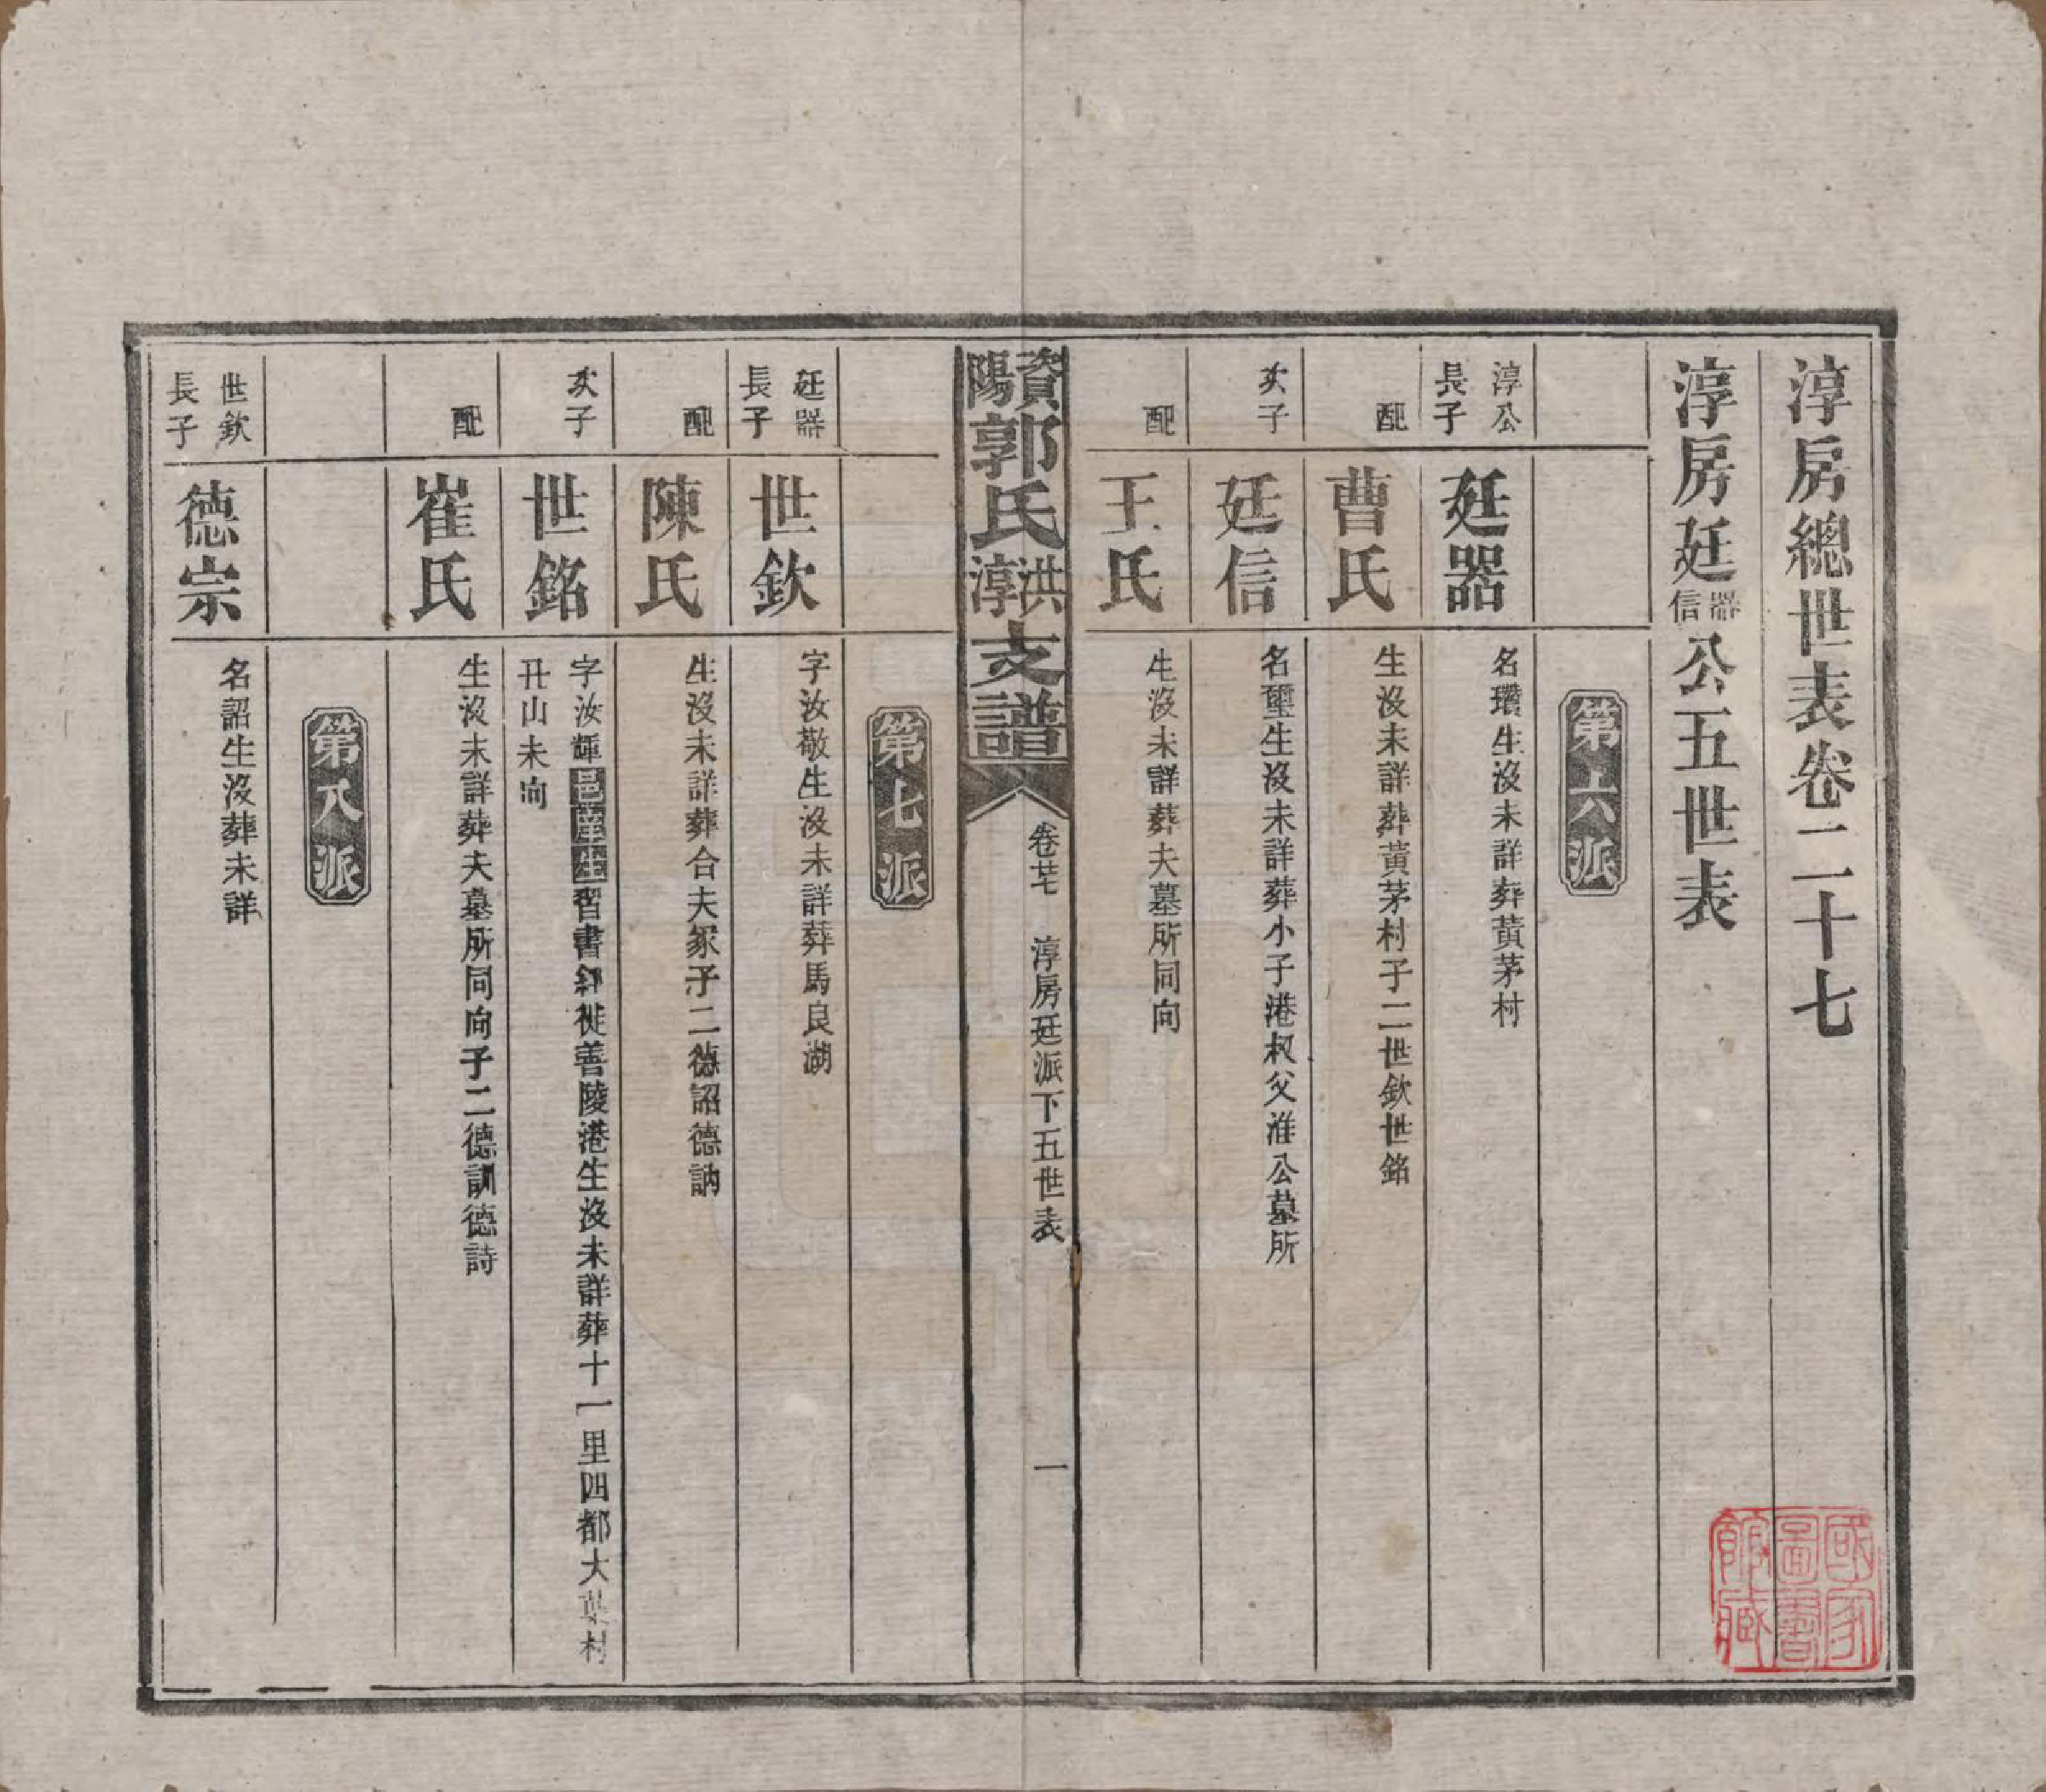 淳房總世表卷二十七
淳房廷器信公五世表
第六派
淳公長子
廷器
名瓚生沒未詳葬黃茅村
配
曹氏
生沒未詳葬黃茅村子二世欽世銘
次子
廷信
名璽生沒未詳葬小子港叔父淮公墓所
配
王氏
生沒未詳葬夫墓所同向
資陽郭氏洪淳支譜
卷廿七
淳房廷派下五世表
一
第七派
廷器長子
世欽
字汝敬生沒未詳葬馬良湖
配
陳氏
生沒未詳葬合夫冢子二德詔德訥
次子
世銘
字汝輝邑庠生習書經徙善陵港生沒未詳葬十一里四都大葉村
丑山未向
配
崔氏
生沒未詳葬夫墓所同向子二德訓德詩
第八派
世欽長子
德宗
名詔生沒葬未詳
國家圖書館藏